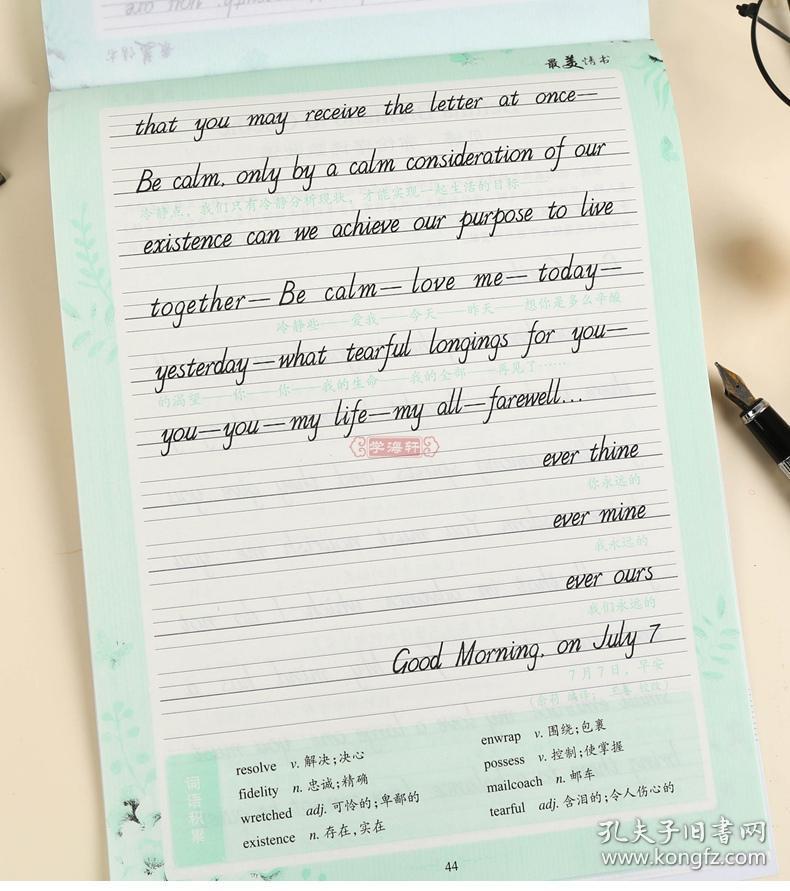 最美情书
最美情书
that you may receive the letter at once—
Be calm, only by a calm consideration of our
冷静点，我们只有冷静分析现状，才能实现一起生活的目标——
existence can we achieve our purpose to live
together—Be calm—love me—today—
冷静些——爱我——今天——昨天——想你是多么辛酸
yesterday—what tearful longings for you—
的渴望——你——你——我的生命——我的全部——再见了……
you—you—my life—my all—farewell...
学海轩
ever thine
你永远的
ever mine
我永远的
ever ours
我们永远的
Good Morning, on July 7
7月7日，早安
词语积累
resolve v. 解决;决心
fidelity n. 忠诚;精确
wretched adj. 可怜的;卑鄙的
existence n. 存在,实在
enwrap v. 围绕;包裹
possess v. 控制;使掌握
mailcoach n. 邮车
tearful adj. 含泪的;令人伤心的
44
孔夫子旧书网
www.kongfz.com